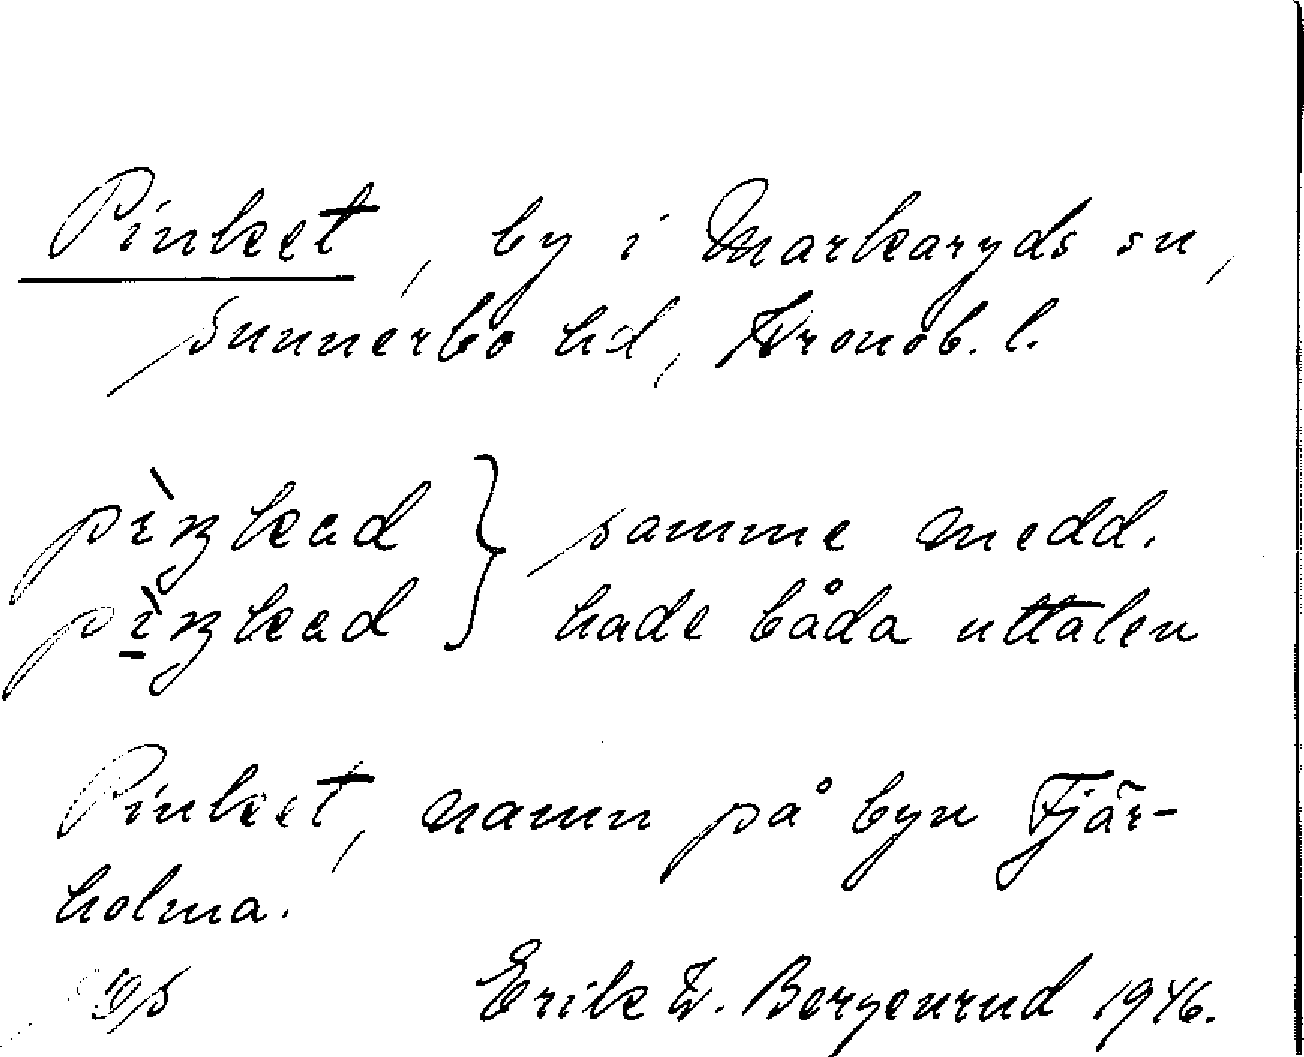 Pinket, by i Markaryds sn,
Sunnerbo hd, Kronob. l.
pìŋkəd } samme medd.
pì̱ŋkəd } hade båda uttalen
Pinket, namn på byn Fjär-
holma.
Erik W. Bergenrud 1946.